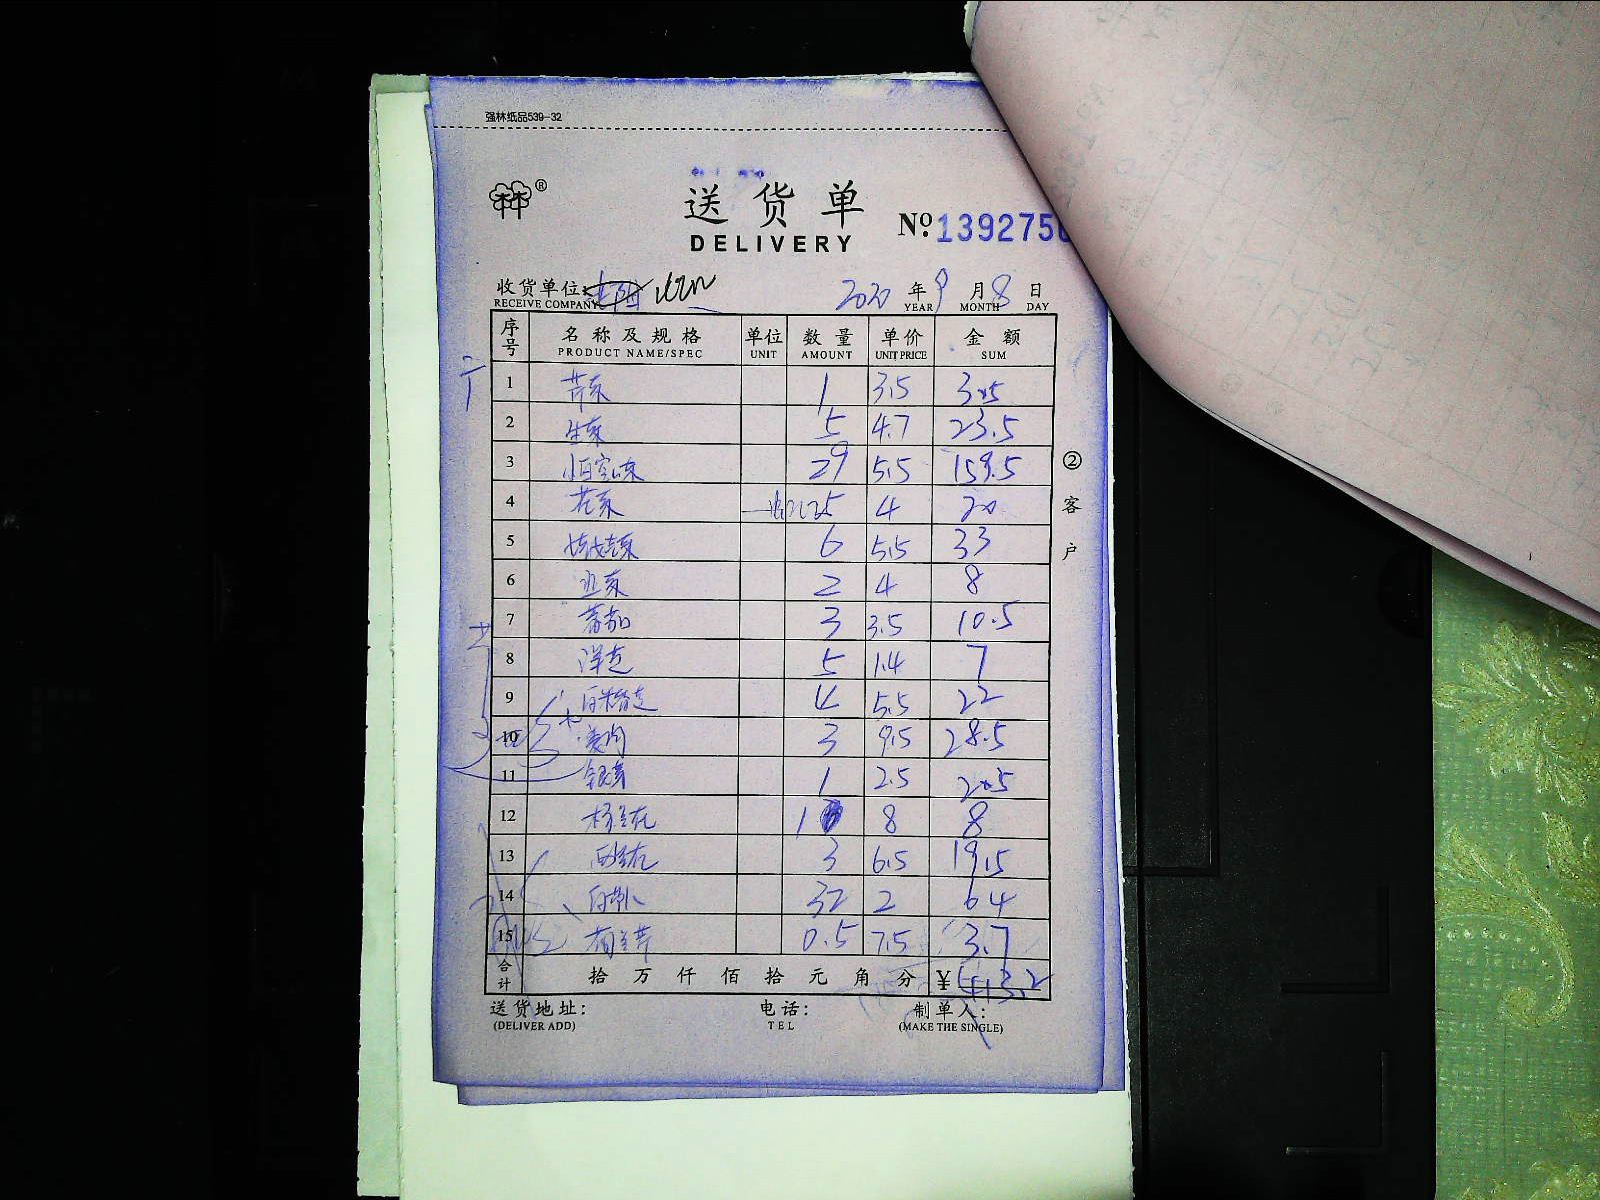 强林纸品539-32
林林 ®
送货单
DELIVERY
№ 1392750
收货单位
RECEIVE COMPANY
2020 年 9 月 8 日
YEAR MONTH DAY
序号 名称及规格 单位 数量 单价 金额
PRODUCT NAME/SPEC UNIT AMOUNT UNIT PRICE SUM
1 芹菜 1 3.5 3.5
2 生菜 5 4.7 23.5
3 29 5.5 159.5
4 花菜 5 4 20
5 6 5.5 33
6 韭菜 2 4 8
7 蕃茄 3 3.5 10.5
8 洋芝 5 1.4 7
9 4 5.5 22
10 3 9.5 28.5
11 银芽 1 2.5 2.5
12 1 8 8
13 西兰花 3 6.5 19.5
14 白卜 32 2 64
15 0.5 7.5 3.7
合计 拾 万 仟 佰 拾 元 角 分 ¥ 413.2
② 客户
送货地址: 电话: 制单人:
(DELIVER ADD) TEL (MAKE THE SINGLE)